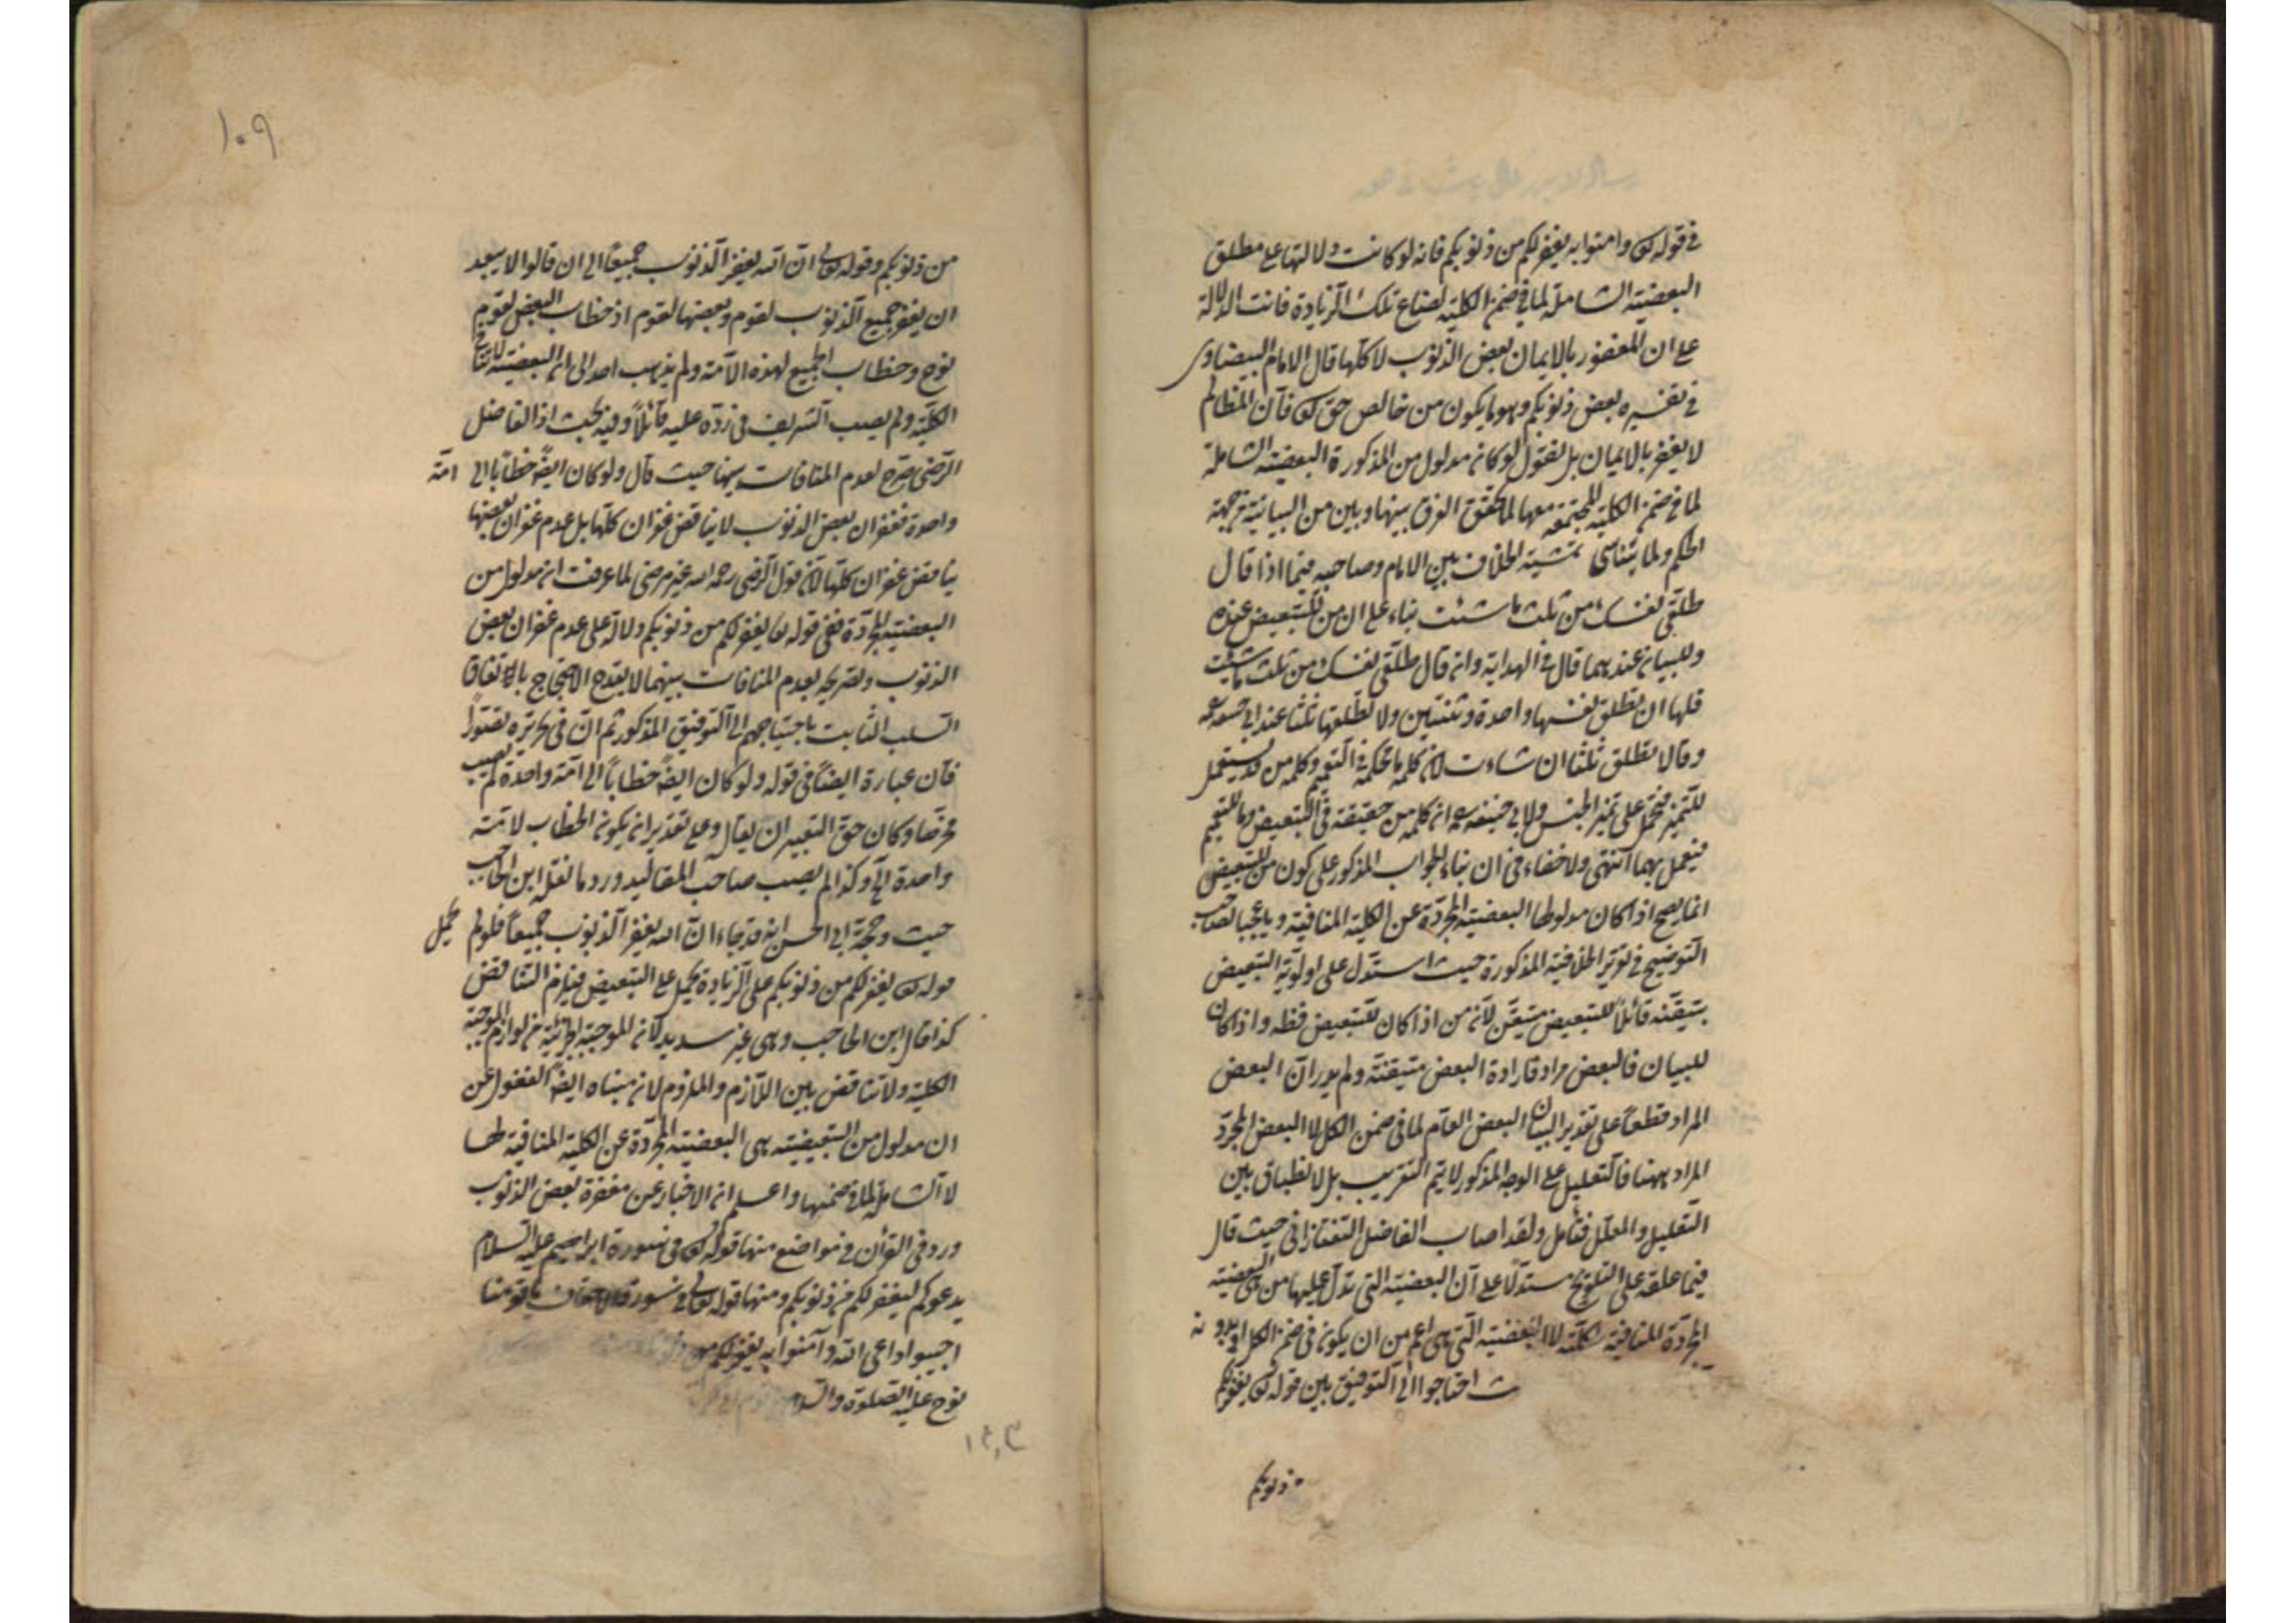 في قوله تع وامنوا به يغفر لكم من ذنوبكم فانه لو كانت دلالتها على مطلق
البعضية الشاملة لما في ضمن الكلية لضاع تلك الزيادة فانت الدلالة
على ان المغفور بالايمان بعض الذنوب لا كلها قال الامام البيضاوى
في تفسيره بعض ذنوبكم وهو ما يكون من خالص حق تع فان المظالم
لا يغفر بالايمان بل نقول لو كان مدلول من المذكورة البعضية الشاملة
لما في ضمن الكلية المجتمعة معها لما تحقق الفرق بينها وبين من البيانية من جهة
الحكم ولما يتناسى تمشية الخلاف بين الامام وصاحبيه فيما اذا قال
طلقى نفسك من ثلث ما شئت بناء على ان من للتبعيض عنده
وللبيان عندهما قال في الهداية وان قال طلقى نفسك من ثلث ما شئت
فلها ان تطلق نفسها واحدة وثنتين ولا تطلقها ثلثا عند ابى حنيفه
وقالا تطلق ثلثا ان شاءت لان كلمة ما محكمة في التعميم وكلمة من قد يستعمل
للتمييز فتحمل على تميز الجنس ولابى حنيفه ان كلمة من حقيقة في التبعيض وما للتعميم
فيعمل بهما انتهى ولا خفاء في ان بناء الجواب المذكور على كون من للتبعيض
انما يصح اذا كان مدلولها البعضية المجردة عن الكلية المنافية ويا عجبا لصاحب
التوضيح في تقرير الخلافية المذكورة حيث استدل على اولوية التبعيض
بتيقنه قائلاً للتبعيض متيقن لان من اذا كان للتبعيض فظه واذا كان
للبيان فالبعض مراد فارادة البعض متيقنة ولم يدر ان البعض
المراد قطعاً على تقدير البيان البعض العام لما في ضمن الكل لا البعض المجرد
المراد ههنا فالتعليل على الوجه المذكور لا يتم التقريب بل لا نطباق بين
التعليل والمعلل فتأمل ولقد اصاب الفاضل التفتازانى حيث قال
فيما علقه على التلويح مستدلا على ان البعضية التى تدل عليها من هي البعضية
المجردة المنافية للكلية لا البعضية التى هى اعم من ان يكون في ضمن الكل او بدونه
احتاجوا الى التوفيق بين قوله تع يغفر لكم
من ذنوبكم
١٠٩
من ذنوبكم وقوله تعالى ان الله يغفر الذنوب جميعا الى ان قالوا لا يبعد
ان يغفر جميع الذنوب لقوم وبعضها لقوم اذ خطاب البعض لقوم
نوح وخطاب الجميع لهذه الامة ولم يذهب احد الى ان البعضية لا تنافى
الكلية ولم يصب الشريف في رده عليه قائلاً وفيه بحث اذ الفاضل
الرضى صرح لعدم المنافات بينهما حيث قال ولو كان ايضاً خطابا الى امة
واحدة فغفران بعض الذنوب لا يناقض غفران كلها بل عدم غفران بعضها
يناقض غفران كلها لان قول الرضى رحمه الله غير مرضى لما عرفت ان مدلول من
البعضية المجردة ففي قوله تع يغفر لكم من ذنوبكم دلالة على عدم غفران بعض
الذنوب وتصريحه بعدم المنافات بينهما لا يقدح الاحتجاج بالاتفاق
السلف الثابت باحتياجهم الى التوفيق المذكور ثم ان في تحريره قصوراً
فان عبارة ايضاً في قوله ولو كان ايضاً خطاباً الى امة واحدة لم يصب
محزها وكان حق التعبير ان يقال وعلى تقدير ان يكون الخطاب لامة
واحدة الخ وكذا لم يصب صاحب المقاليد ورد ما نقل ابن الحاجب
حيث وحجة ابى الحسن انه قد جاء ان الله يغفر الذنوب جميعاً فلو لم يحمل
قوله تع يغفر لكم من ذنوبكم على الزيادة يحمل على التبعيض فيلزم التناقض
كذا قال ابن الحاجب وهى غير سديد لان الموجبة الجزئية من لوازم الموجبة
الكلية ولا تناقض بين اللازم والملزوم لان مبناه ايضاً الغفول عن
ان مدلول من التبعيضية هى البعضية المجردة عن الكلية المنافية لها
لا الشاملة لما في ضمنها واعلم ان الاخبار عن مغفرة بعض الذنوب
ورد في القرأن في مواضع منها قوله تع في سورة ابراهيم عليه السلام
يدعوكم ليغفر لكم من ذنوبكم ومنها قوله تعالى في سورة الاحقاف يا قومنا
اجيبوا داعى الله وآمنوا به يغفر لكم من
نوح عليه الصلوة والسلام